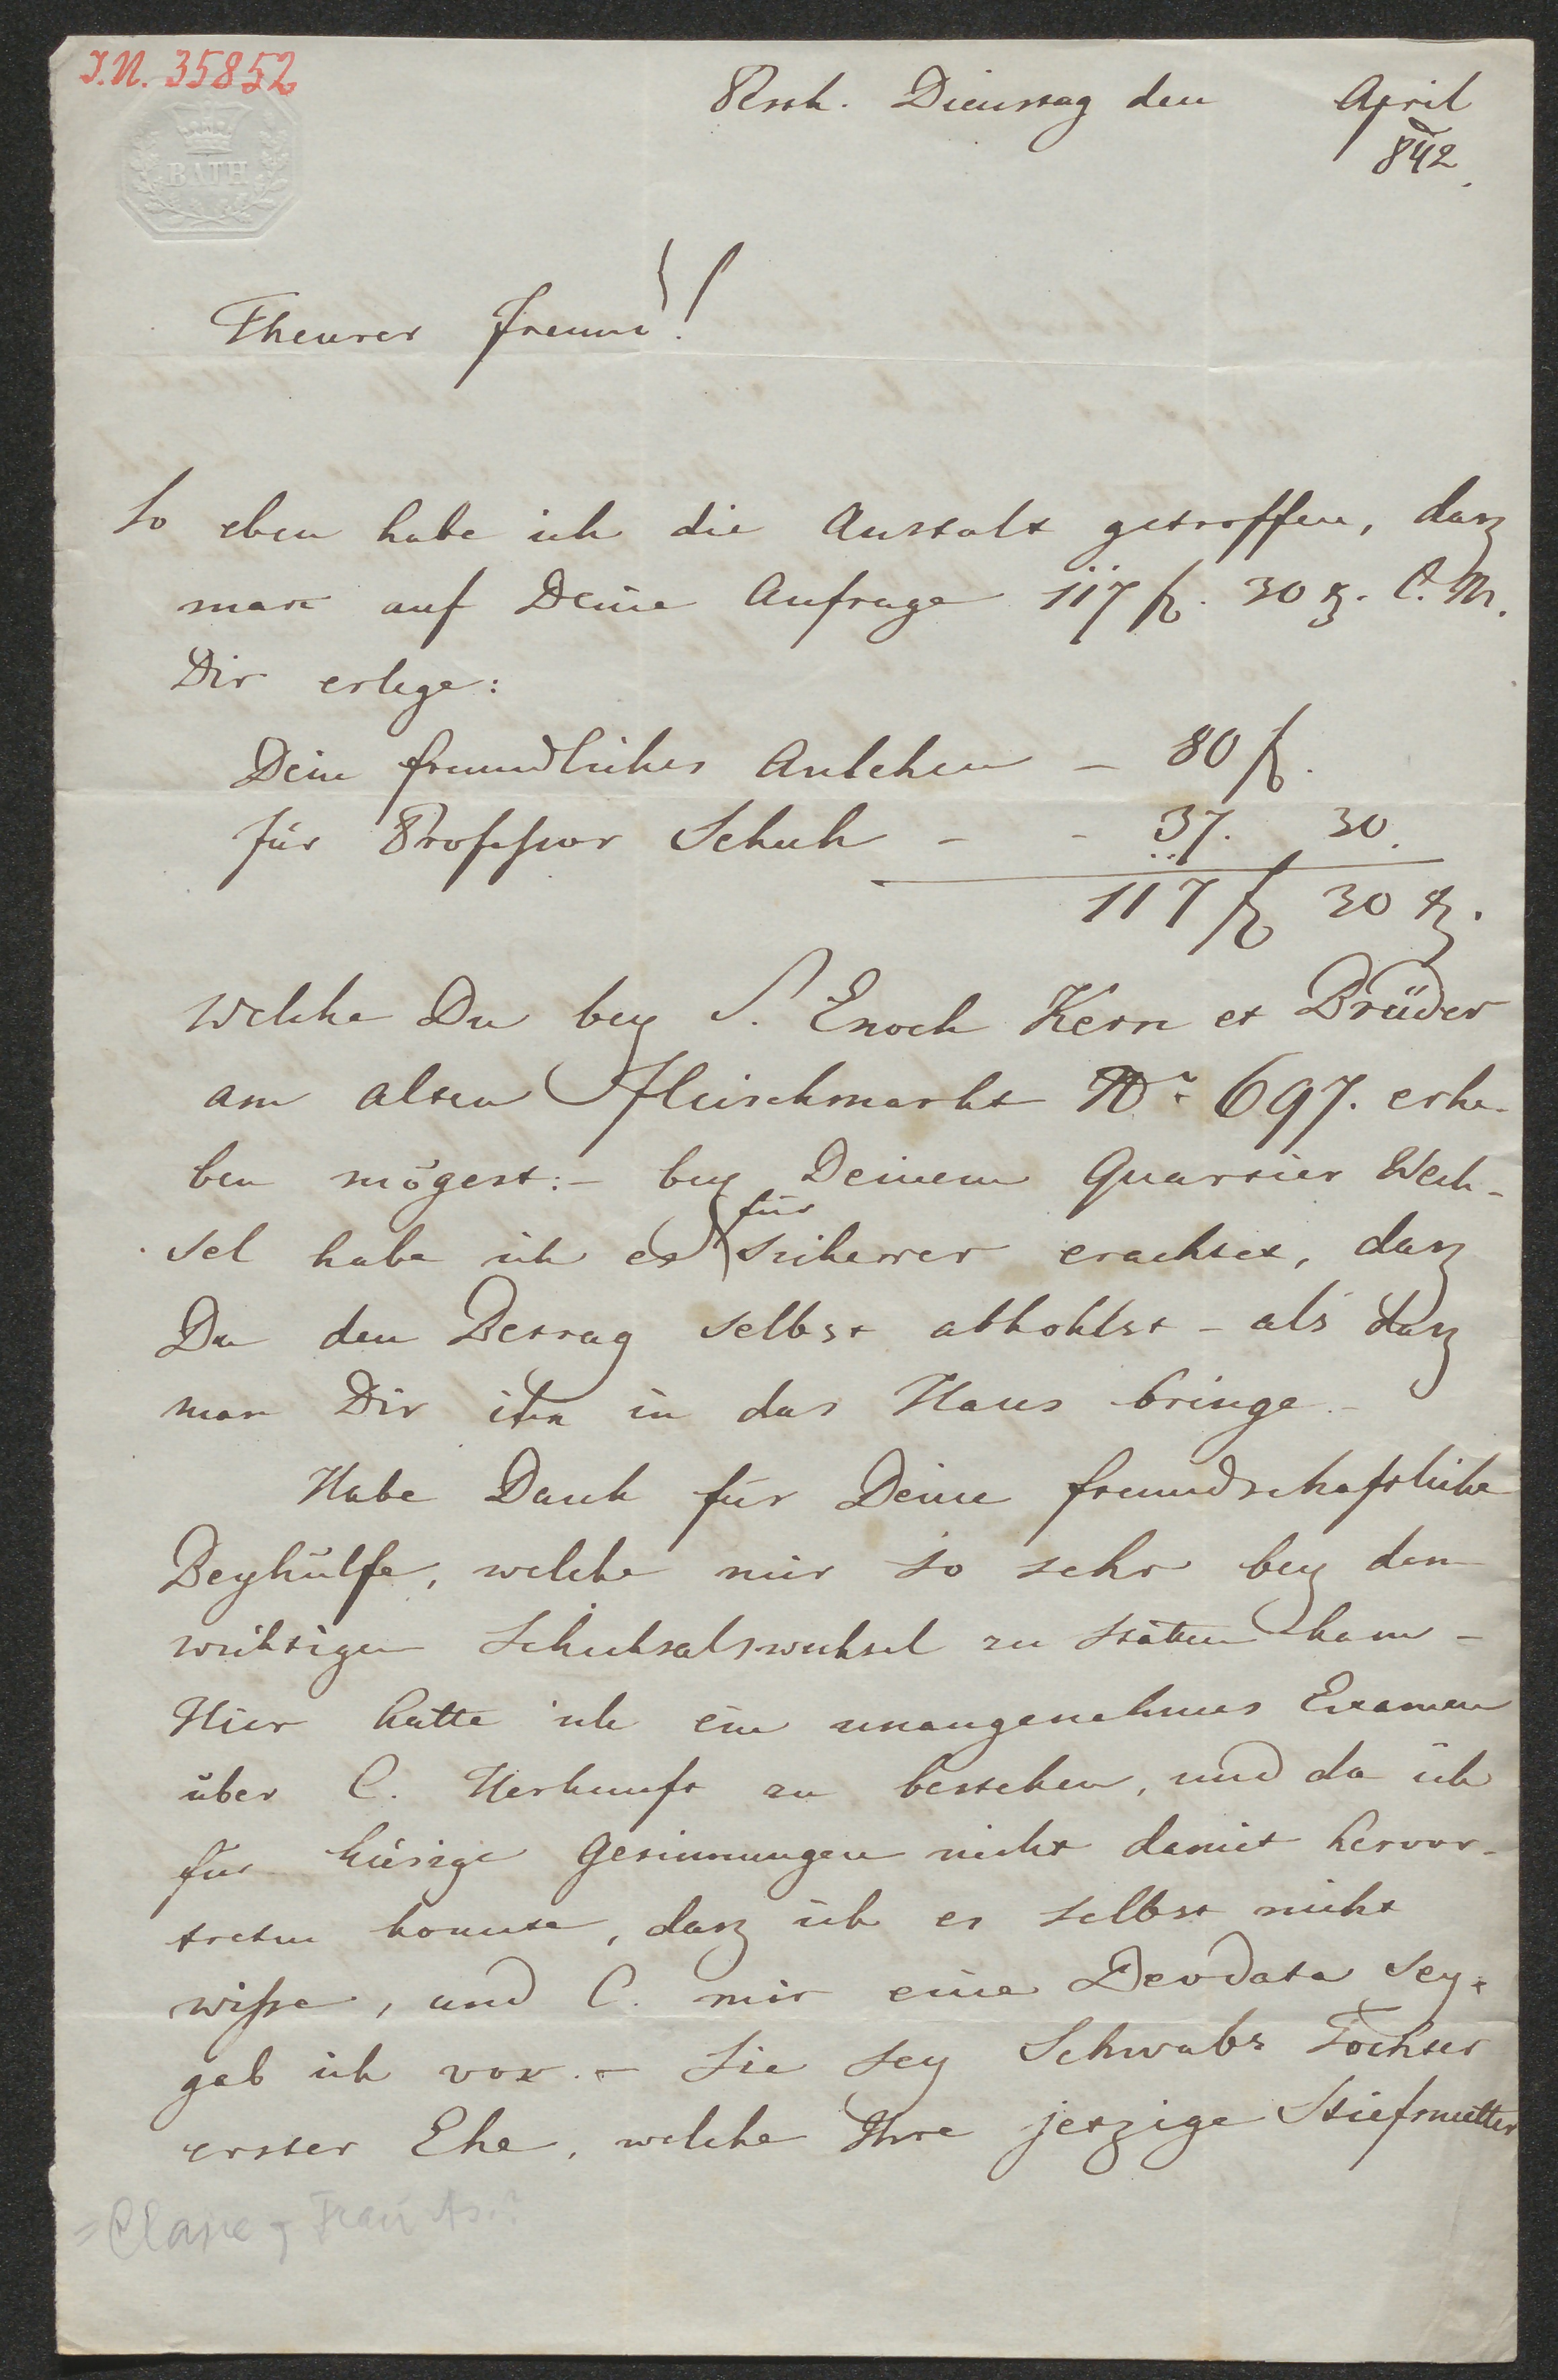 I.N. 35852
BATH
Pesth. Dienstag den April
842.
Theurer Freund!
So eben habe ich die Anstalt getroffen, dasz
man auf Deine Anfrage 117 fl. 30 x. C. M.
Dir erlege:
Dein freundliches Anlehen – 80 fl.
für Professor Schuh – – 37. 30.
117 fl 30 x.
welche Du bey S. Enoch Kern et Brüder
am alten Fleischmarkt No 697. erhe-
ben mögest: – bey Deinem Quartier Wech-
sel habe ich es für sicherrer erachtet, dasz
Du den Betrag selbst abhohlst – als dasz
man Dir ihn in das Haus bringe. –
Habe Dank für Deine freundschaftliche
Beyhülfe, welche mir so sehr bey dem
wichtigen Schicksalswechsel zu statten kam –
Hier hatte ich ein unangenehmes Examen
über C. Herkunft zu bestehen, und da ich
für hiesige Gesinnungen nicht damit hervor-
treten konnte, dasz ich es selbst nicht
wisse, und C. mir eine Deodata sey.
gab ich vor. – Sie sey Schwabs Tochter
erster Ehe, welche Ihre jetzige Stiefmutter
= Claire, Frau As.?